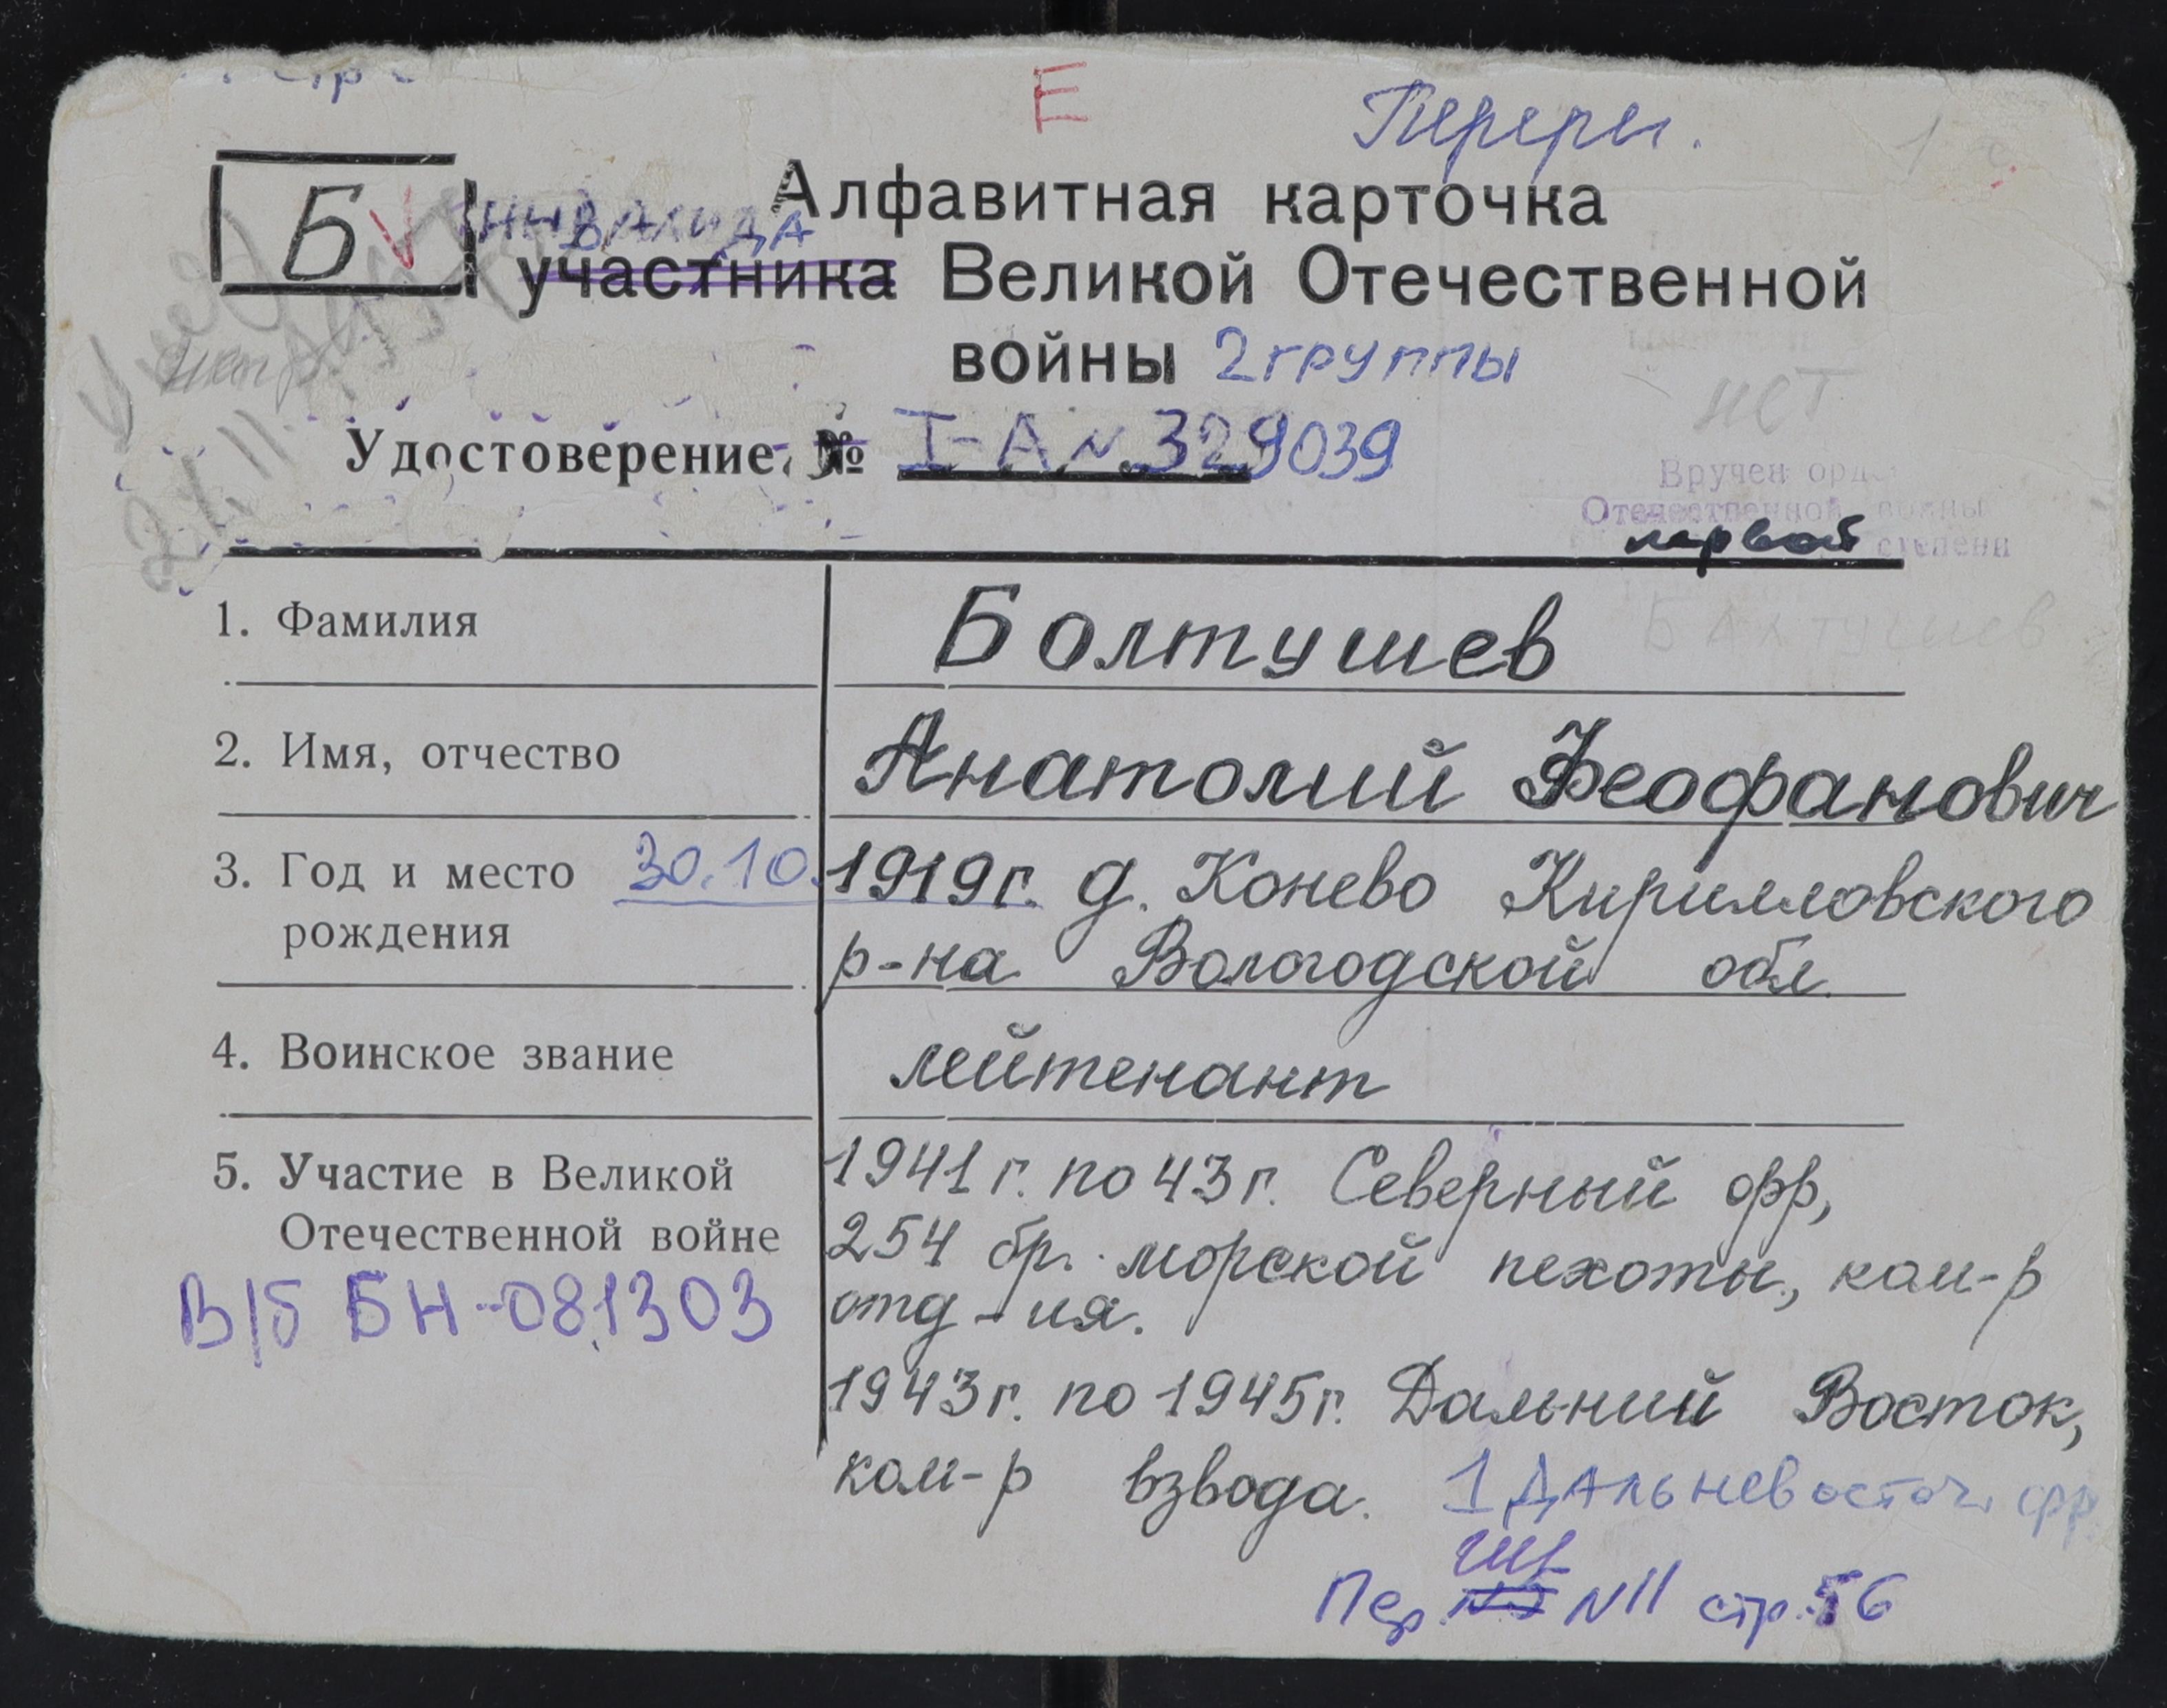 Е
Перерег.
Б
Алфавитная карточка
инвалида
участника Великой Отечественной
войны 2 группы
нет
Удостоверение № I-А № 329039
Вручен орд
Отечественной войны
первой степени
1. Фамилия Болтушев
Балтушев
2. Имя, отчество Анатолий Феофанович
3. Год и место 30.10.1919г. д. Конево Кирилловского
рождения р-на Вологодской обл.
4. Воинское звание лейтенант
5. Участие в Великой 1941г. по 43г. Северный фр,
Отечественной войне 254 бр. морской пехоты, ком-р
В/б БН-081303 отд-ия.
1943г. по 1945г. Дальний Восток,
ком-р взвода. 1 Дальневосточ. фр
Пер. №11 стр. 56